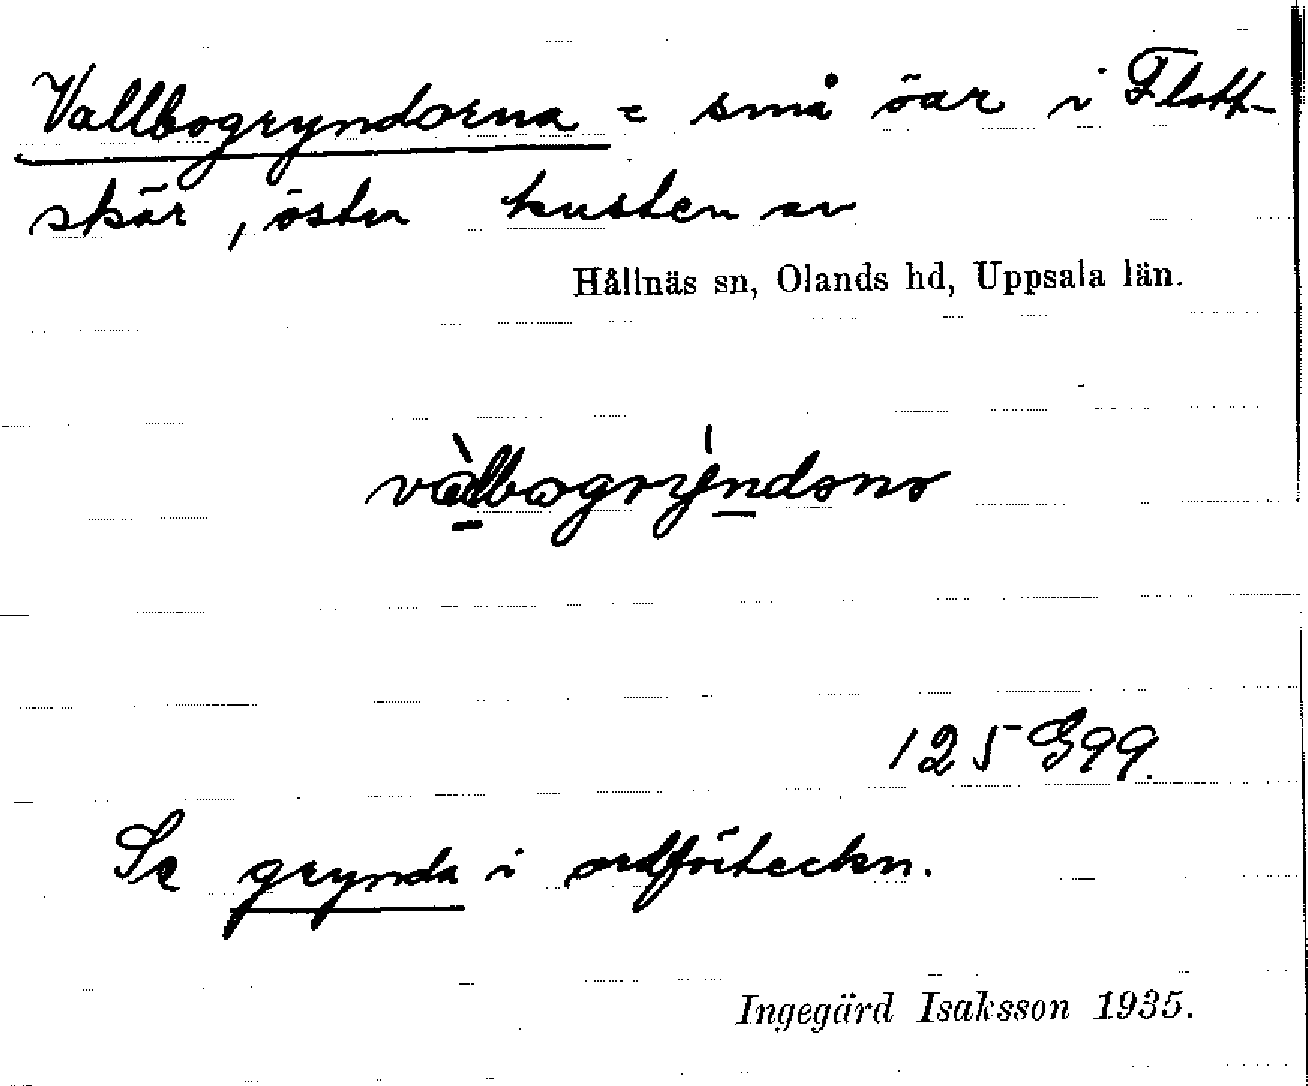 Vallbogryndorna = små öar i Flott-
skär, östra kusten av
Hållnäs sn, Olands hd, Uppsala län.
vàlbogrýndono
125 G 99.
Se grynda i ordförteckn.
Ingegärd Isaksson 1935.